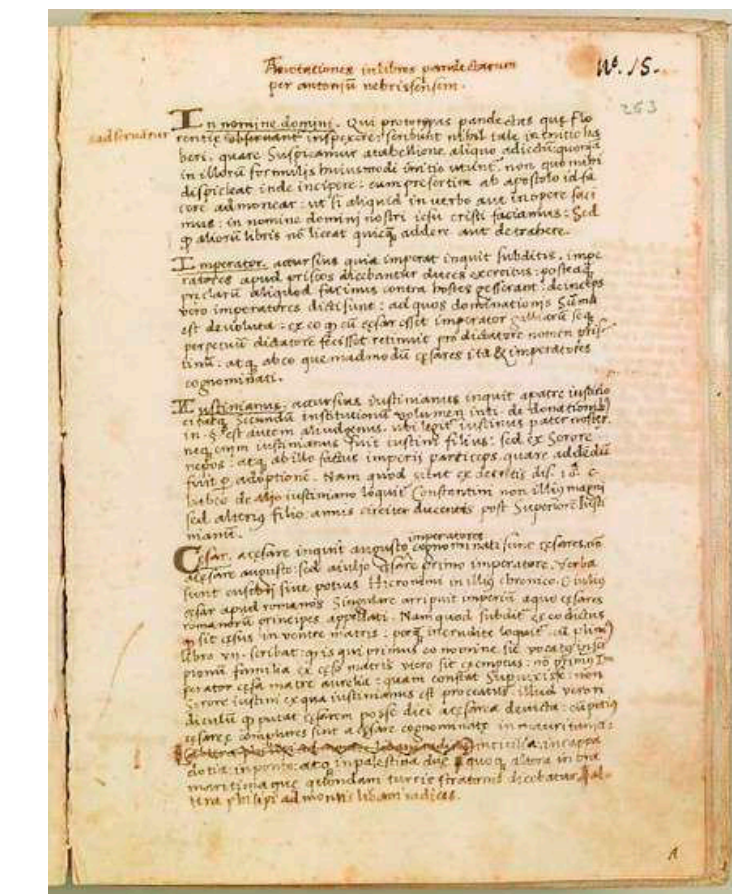 Anotationes in libros pandectarum
per antoniũ nebrissensem.
Nº. 15.
253
asseruantur
In nomine domini. Qui prototypas pandectas quę Flo
rentię obseruant inspexere: scribunt nihil tale in initio ha
beri. quare suspicamur a tabellione aliquo adiectũ: quoniã
in illorũ formulis huiusmodi initio utunt. non quo mihi
displiceat inde incipere: cum presertim ab apostolo id fa
cere admoneat: ut si aliquid in uerbo aut in opere faci
mus: in nomine domini nostri iesu cristi faciamus: Sed
ꝙ aliorũ libris nõ liceat quicꝗ addere aut detrahere.
Imperator. accursius quia imperat inquit subditis. impe
ratores apud priscos dicebantur duces exercitus: posteaꝗ
preclarũ aliquod facinus contra hostes gesserant: deinceps
uero imperatores dicti sunt: ad quos dominationis sũma
est deuoluta: ex eo ꝙ cũ cęsar esset imperator galliarũ seꝗ
perpetuũ dictatorẽ fecisset retinuit pro dictatore nomen pris
tinũ. atꝗ ab eo quemadmodũ cęsares ita & imperatores
cognominati.
Iustinianus. accursius iustinianus inquit a patre iustino
citatꝗ secundũ institutionũ uolumen titi. de donationibꝰ
in .§. est autem aliud genus. ubi legit iustinus pater noster.
neꝗ enim iustinianus fuit iustini filius: sed ex sorore
nepos: atꝗ ab illo factus imperii particeps. quare addendũ
fuit ꝑ adoptionẽ. Nam quod citat ex decretis dis. 10. c.
habeo de alio iustiniano loquit Constantini non illius magni
sed alterius filio annis circiter ducentis post superiorẽ iusti
nianũ.
imperatores
Cęsar. a cęsare inquit augusto cognominati sunt cęsares. nõ
a cęsare augusto: sed a iulio cęsare primo imperatore. Verba
sunt eusebii siue potius Hieronimi in illius chronico. C iulius
cęsar apud romanos singulare arripuit imperiũ a quo cęsares
romanorũ principes appellati. Nam quod subdit ex eo dictus
ꝙ sit cęsus in uentre matris: perꝗ inerudite loquit. cũ plinius
libro .vii. scribat: ꝙ is qui primus eo nomine sit uocatus
pionũ familia ex cęsa matris utero sit exemptus: nõ primus Im
perator cęsa matre aurelia: quam constat superuixisse: non
sorore iustini ex qua iustinianus est procreatus. illud uero ri
diculũ ꝙ putat cęsarem posse dici a cęsarea deuicta: cũ potius
cęsareę complures sint a cęsare cognominatę in mauritania:
in cilitia. in cappa
dotia: in ponto. atꝗ in palestina duę quoꝗ altera in ora
maritima quę quondam turris stratonis dicebatur. al
tera philipi ad montis libani radices.
A